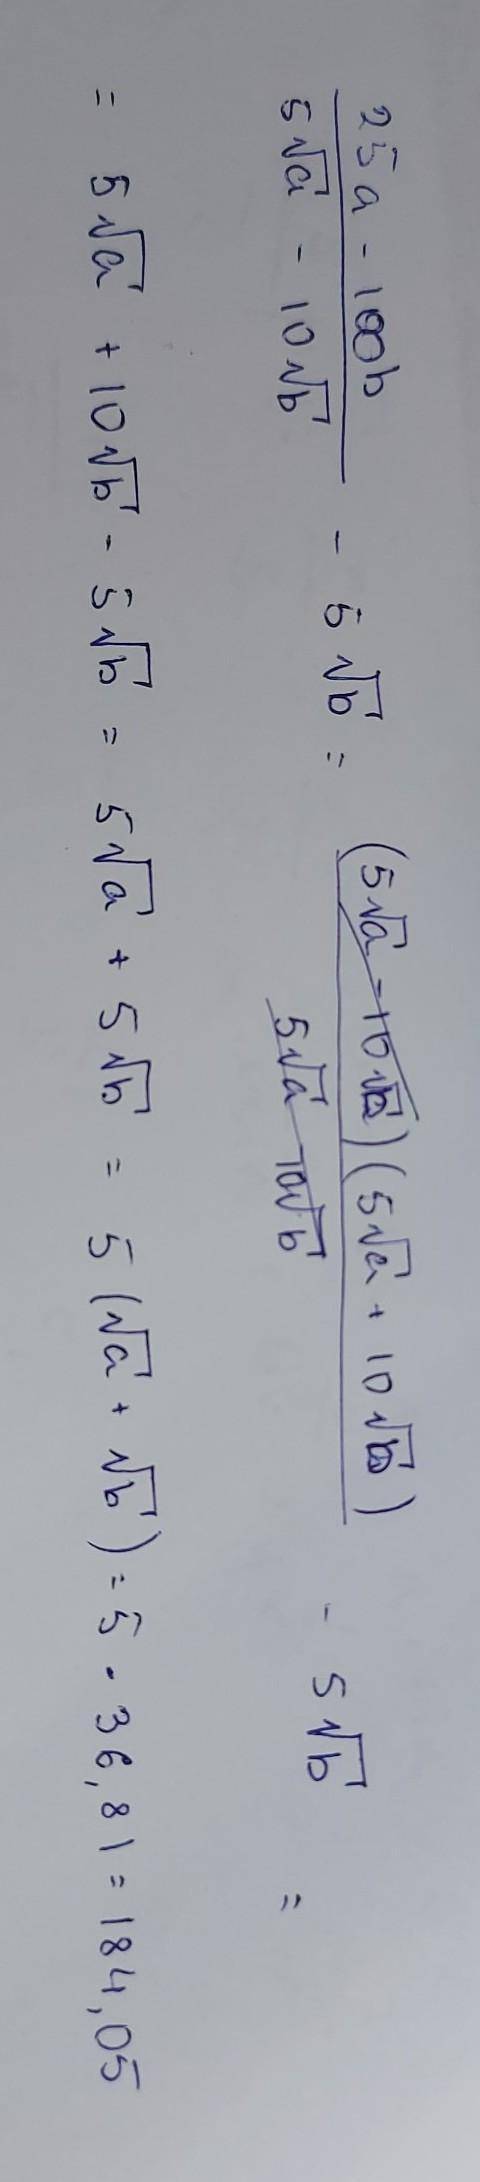 (25a - 100b)/(5√a - 10√b) - 5√b = ((5√a - 10√b)(5√a + 10√b))/(5√a - 10√b) - 5√b =
= 5√a + 10√b - 5√b = 5√a + 5√b = 5(√a + √b) = 5 · 36,81 = 184,05